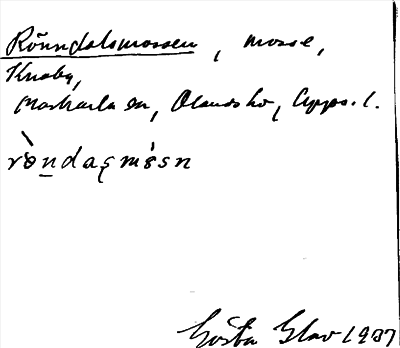 Rönndalsmossen, mosse,
Knaby,
Markarla sn, Olands hd, Upps. l.
rò̀n̲daꞔmósn
Gösta Glav 1937